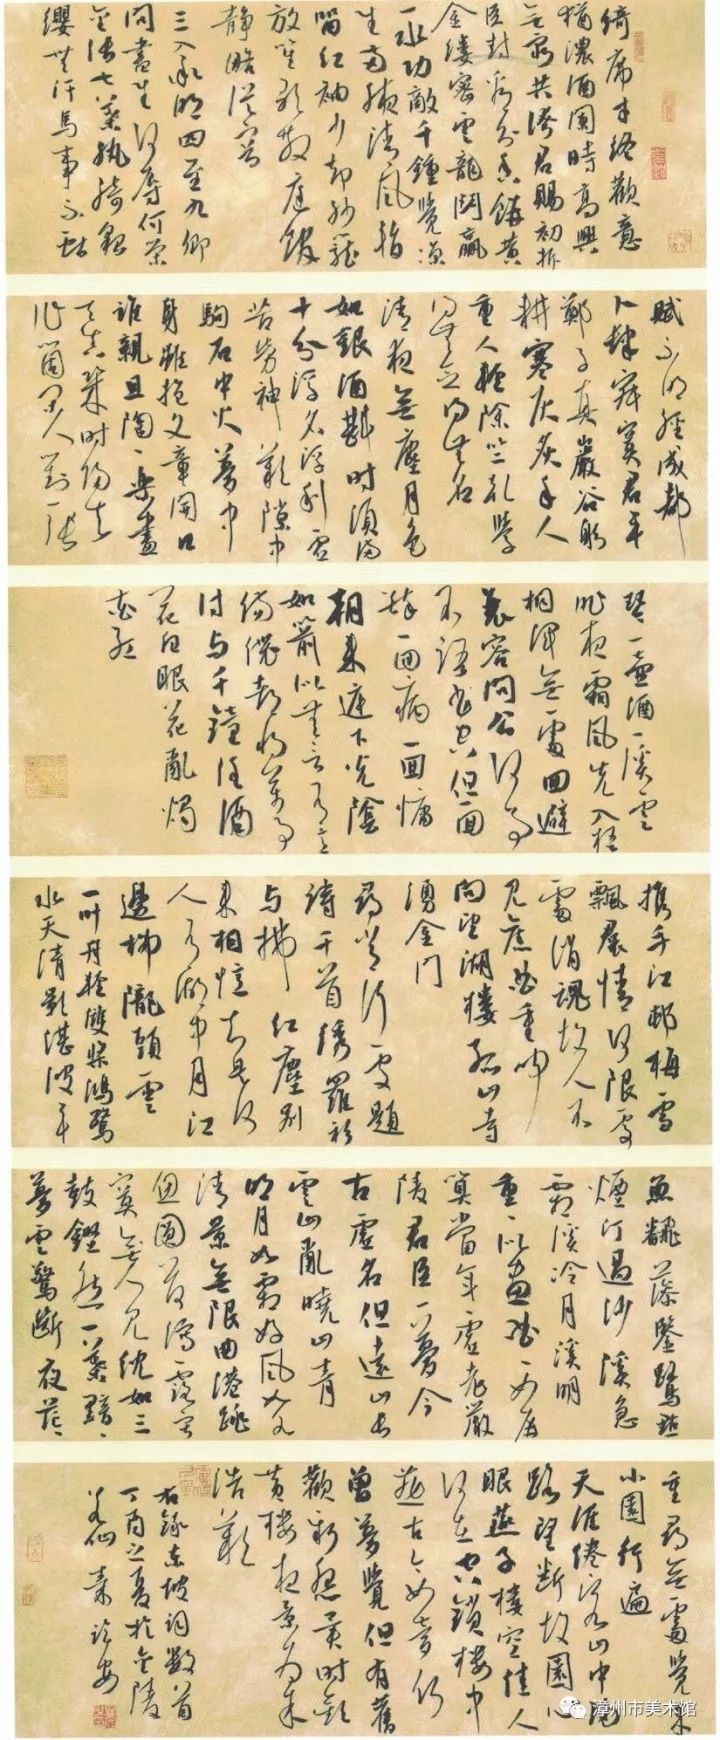 綺席才終歡意
猶濃酒闌時高興
無窮共誇君賜初拆
臣封看分香餅黃
金縷密雲龍鬥贏
一水功敵千鍾覺涼
生兩腋清風暫
留紅袖少卻紗籠
放笙歌散庭館
靜略從容
三入承明四至九卿
問書生何辱何榮
金張七葉紈綺貂
纓無汗馬事不獻
賦不明經成都
卜肆寂寞君平
鄭子真巖谷躬
耕寒灰炙手人
重人輕除竺乾學
得無念得無名
清夜無塵月色
如銀酒斟時須滿
十分浮名浮利虛
苦勞神歎隙中
駒石中火夢中
身雖抱文章開口
誰親且陶陶樂盡
天真幾時歸去
作箇閒人對一張
琴一壺酒一溪雲
昨夜霜風先入梧
桐渾無處回避
衰容問公何事
不語書空但一回
醉一回病一回慵
朝來庭下光陰
如箭似無言有意
傷儂都將萬事
付與千鍾任酒
花白眼花亂燭
花紅
攜手江村梅雪
飄裙情何限處
處消魂故人不
見舊曲重聞
向望湖樓孤山寺
湧金門
尋常行處題
詩千首繡羅衫
與拂紅塵別
來相憶知是何
人有湖中月江
邊柳隴頭雲
一葉舟輕雙槳鴻驚
水天清影湛波平
魚翻藻鑒鷺點
煙汀過沙溪急
霜溪冷月溪明
重重似畫曲曲如屏
算當年虛老嚴
陵君臣一夢今
古虛名但遠山長
雲山亂曉山青
明月如霜好風如水
清景無限曲港跳
魚圓荷瀉露寂
寞無人見紞如三
鼓鏗然一葉黯黯
夢雲驚斷夜茫茫
重尋無處覺來
小園行遍
天涯倦客山中歸
路望斷故園心
眼燕子樓空佳人
何在空鎖樓中
燕古今如夢何
曾夢覺但有舊
歡新怨異時對
黃樓夜景為余
浩歎
右錄東坡詞數首
丁酉之夏於金陵
漳州市美术馆